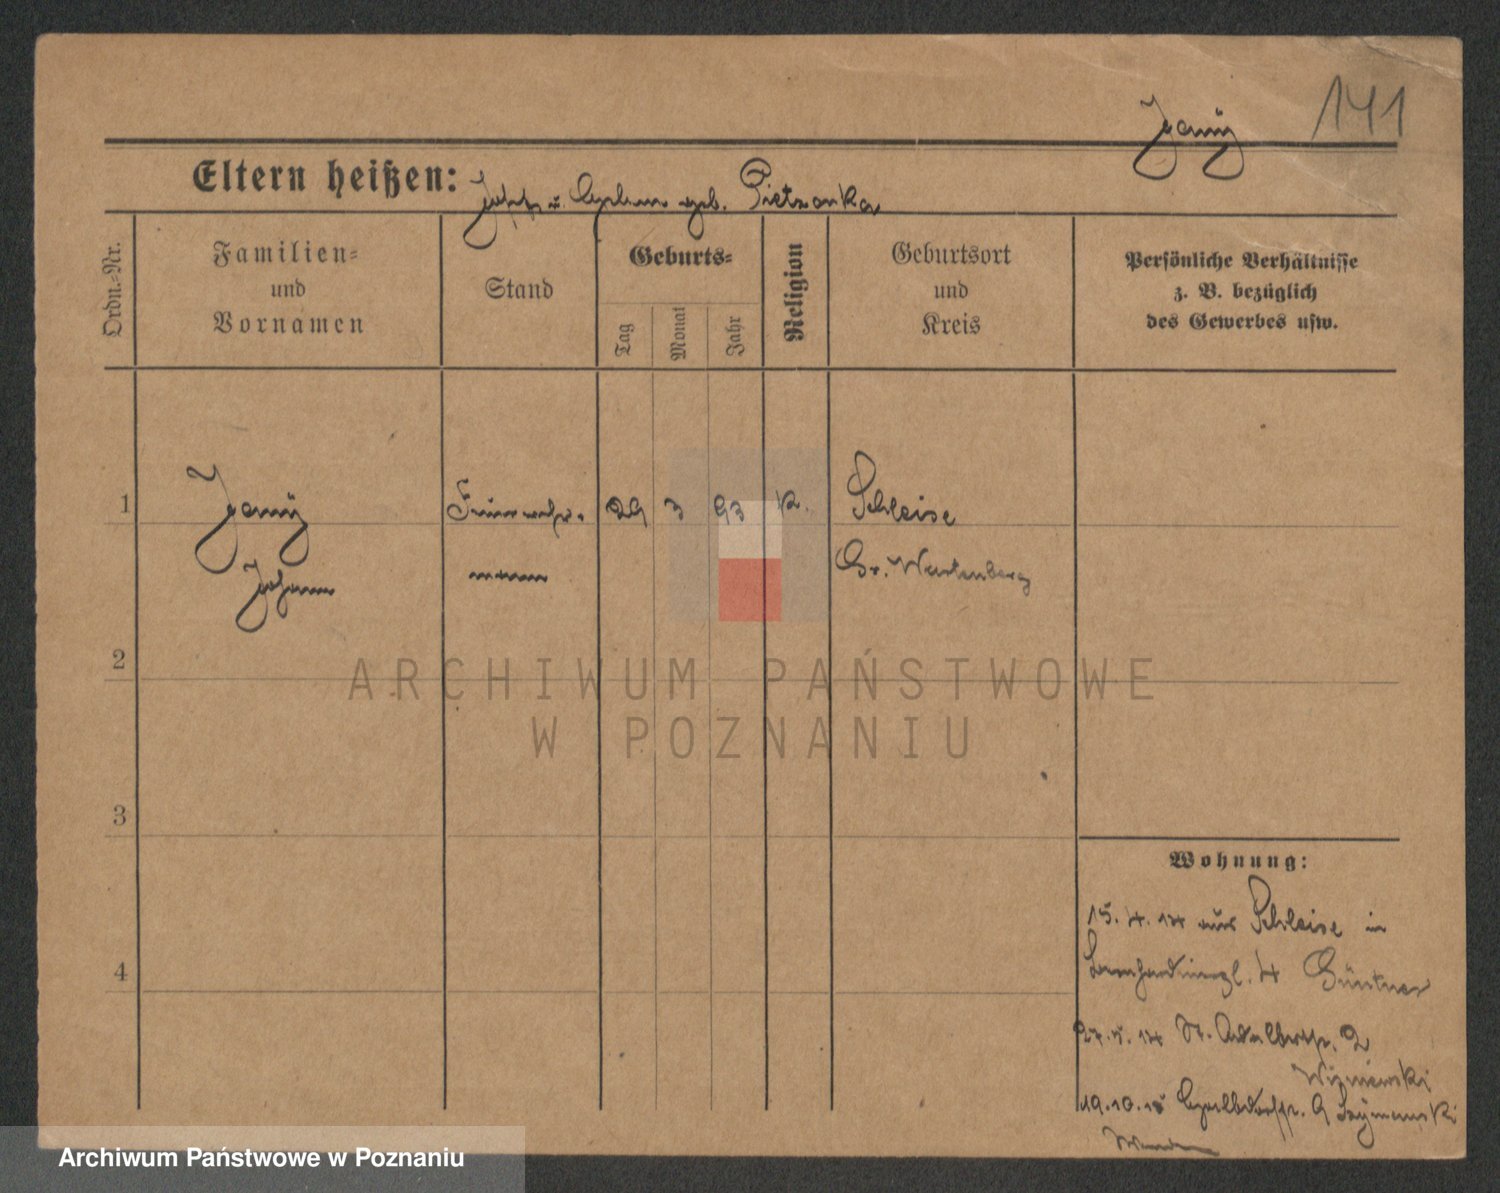 141
Janij
Eltern heißen: Josef u. geb. Pietzonka
Ordn.-Nr.
Familien-
und
Vornamen
Stand
Geburts-
Tag
Monat
Jahr
Religion
Geburtsort
und
Kreis
Persönliche Verhältnisse
z. B. bezüglich
des Gewerbes usw.
1
Janij
Johann
Feuerwehr-
mann
29 3 93 K.
Schleise
Gr. Wartenberg
2
3
4
Wohnung:
15.4.14 aus Schleise in
4 Güntner
27.5.14 St. Adalbertstr. 2
Wizniewski
19.10.15 9 Szymanski
ARCHIWUM PAŃSTWOWE
W POZNANIU
Archiwum Państwowe w Poznaniu